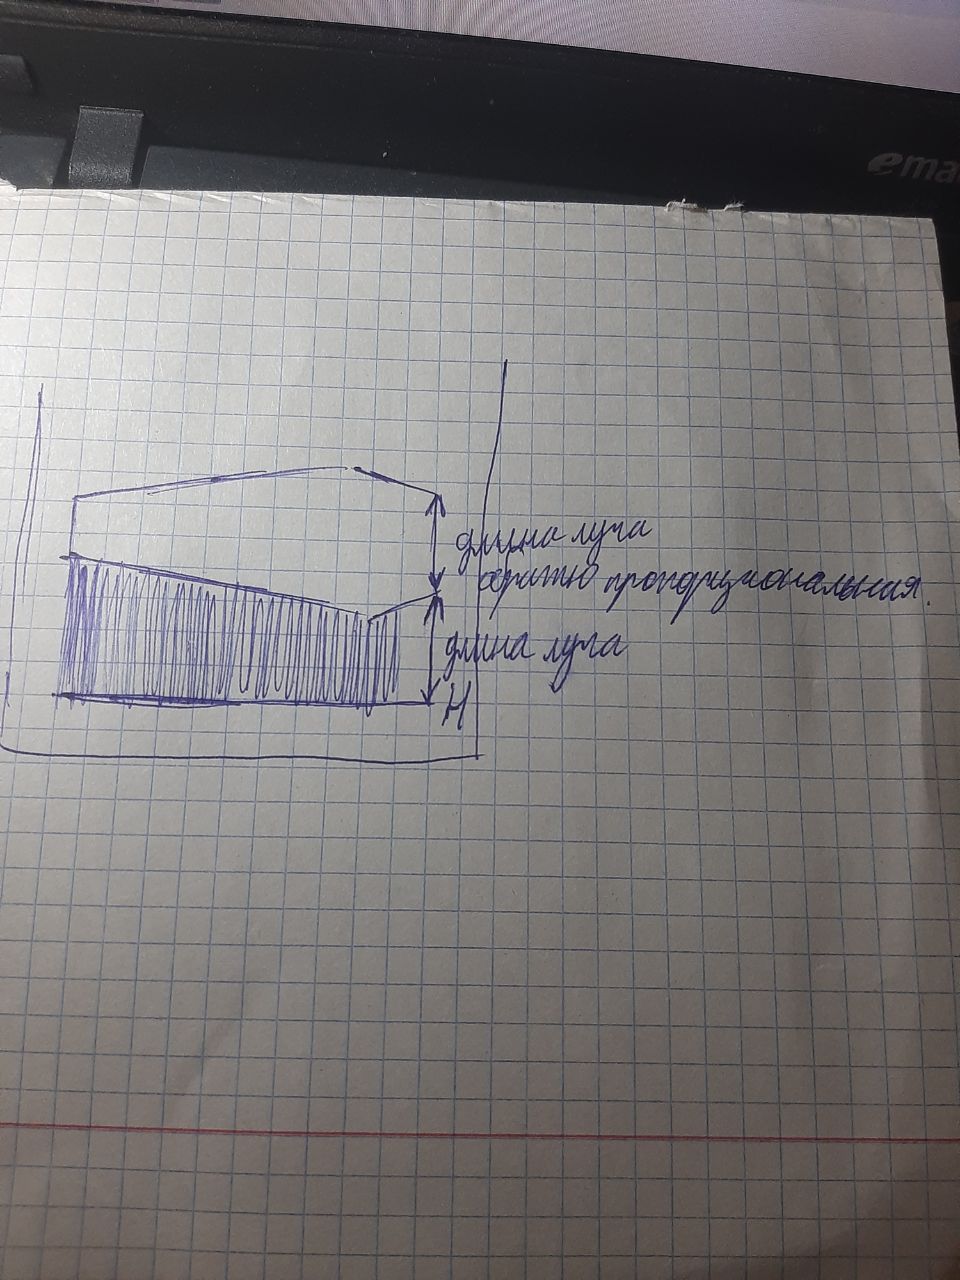 ema
длина луча
обратно пропорциональная.
длина луча
H